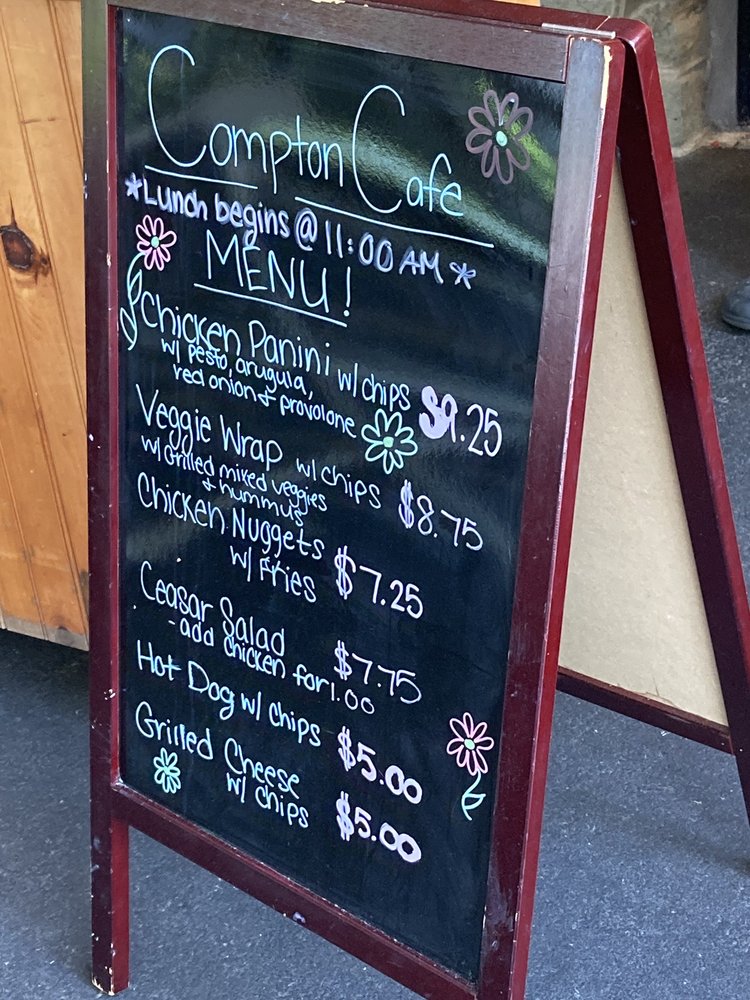 Compton Cafe
*Lunch begins @ 11:00 AM *
MENU!
Chicken Panini w/ chips $9.25
w/ pesto, arugula,
red onion & provolone
Veggie Wrap w/ chips $8.75
w/ Grilled mixed veggies
& hummus
Chicken Nuggets
w/ Fries $7.25
Ceasar Salad $7.75
-add chicken for 1.00
Hot Dog w/ chips $5.00
Grilled Cheese
w/ chips $5.00